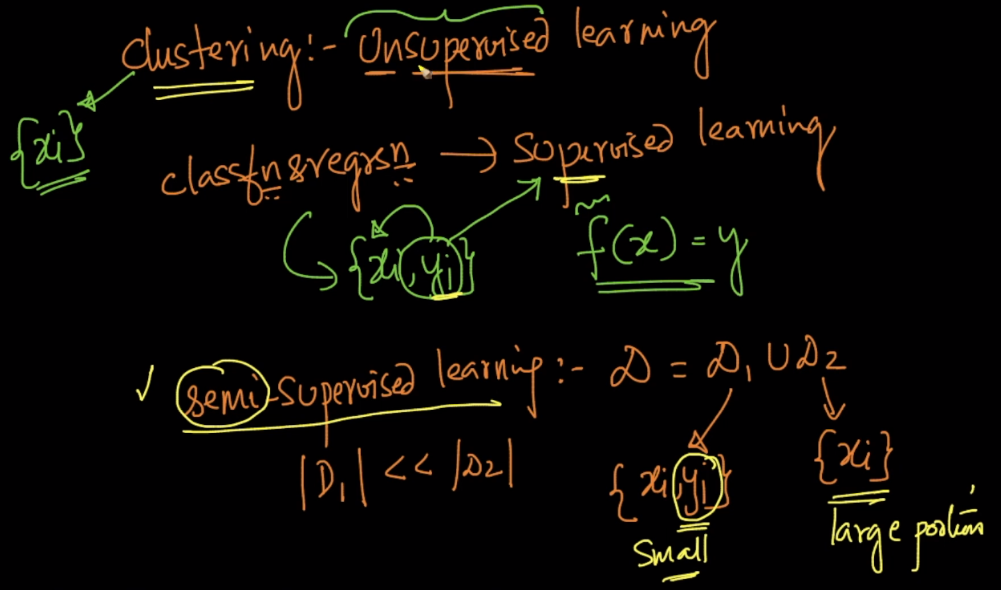 Clustering:- Unsupervised learning
{xi}
classfn & regrsn → Supervised learning
{xi, yi} f(x) = y
✓ Semi-supervised learning:- D = D1 ∪ D2
|D1| << |D2| {xi, yi} {xi}
small large portion